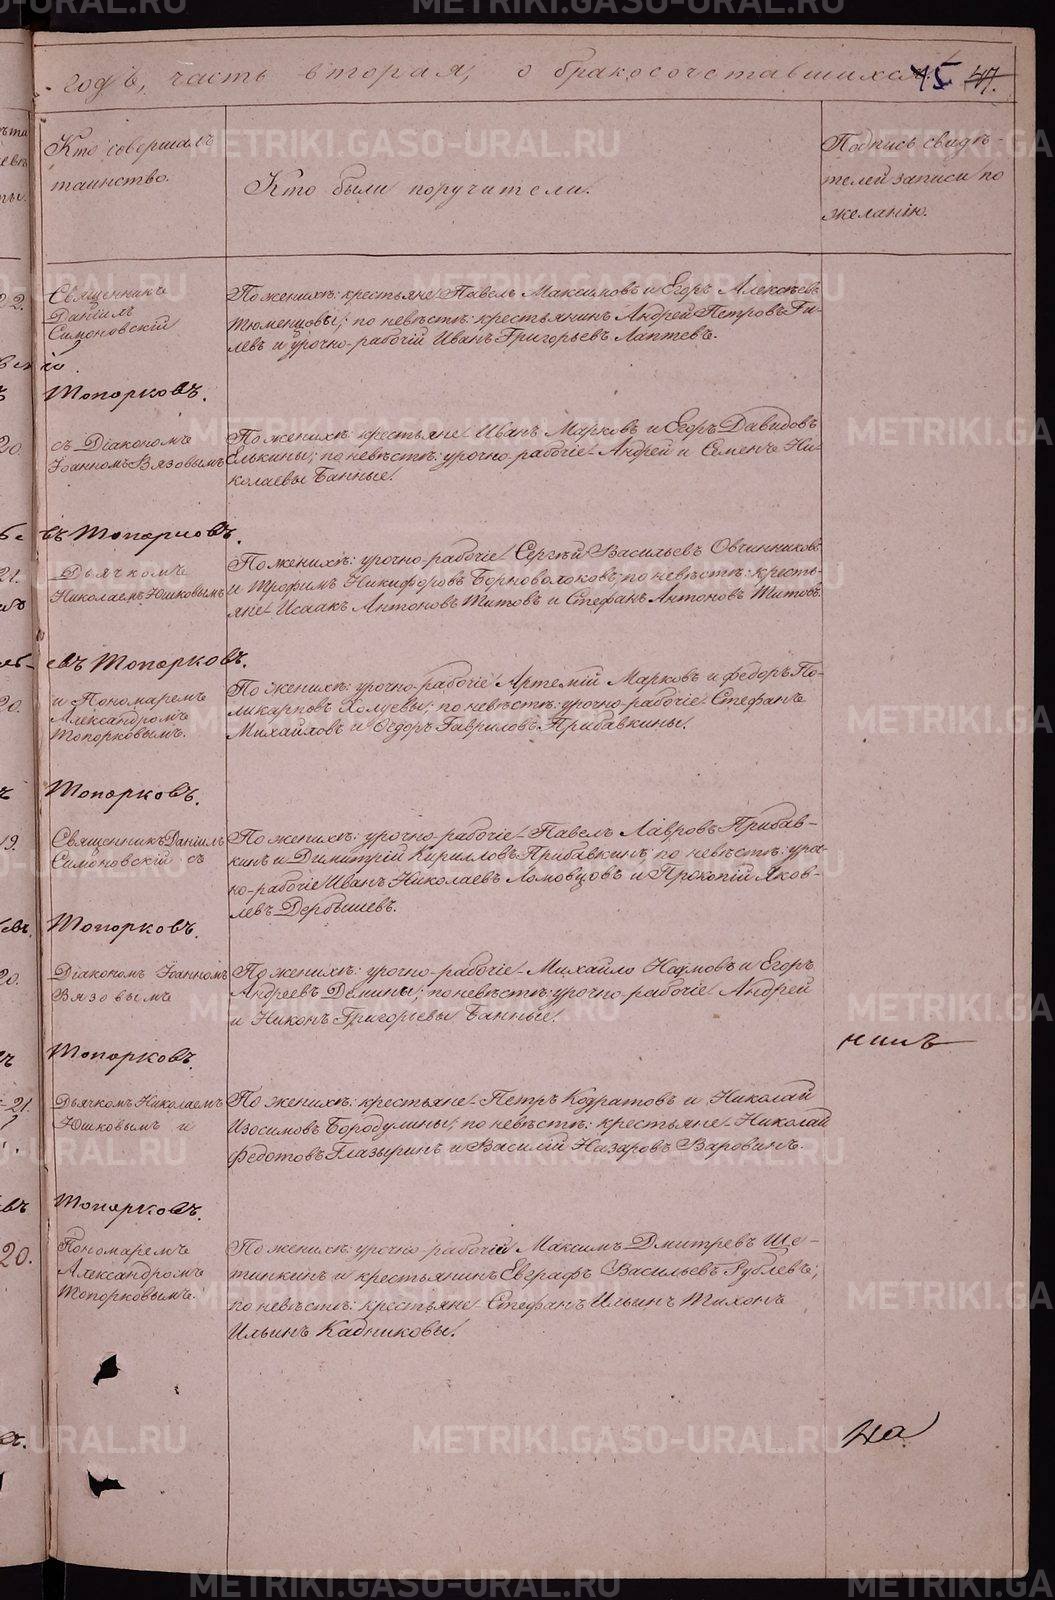 годъ, часть вторая, о бракосочетавшихся. 15 47.
Кто совершалъ
таинство.
Кто были поручители.
Подпись свидѣ-
телей записи по
желанію.
Священникъ
Даніилъ
Симоновскій
По женихѣ: крестьяне Павелъ Максимовъ и Егоръ Алексѣевъ
Тюменцовы; по невѣстѣ: крестьянинъ Андрей Петровъ Ги-
левъ и урочно-рабочій Иванъ Григорьевъ Лаптевъ.
Топорковъ.
съ Діакономъ
Іоанномъ Вязовымъ
По женихѣ: крестьяне Иванъ Марковъ и Егоръ Давидовъ
Елькины; по невѣстѣ: урочно-рабочіе Андрей и Семенъ Ни-
колаевы Банные.
въ Топорковъ.
21. Дьячкомъ
Николаемъ Юшковымъ
По женихѣ: урочно-рабочіе Сергѣй Васильевъ Овчинниковъ
и Трофимъ Никифоровъ Борноволоковъ; по невѣстѣ: кресть-
яне Исаакъ Антоновъ Титовъ и Стефанъ Антоновъ Титовъ.
евъ Топорковъ.
20. и Пономаремъ
Александромъ
Топорковымъ.
По женихѣ: урочно-рабочіе Артемій Марковъ и Федоръ По-
ликарповъ Холуевы; по невѣстѣ: урочно-рабочіе Стефанъ
Михайловъ и Ѳедоръ Гавриловъ Прибавкины.
Топорковъ.
19. Священникъ Даніилъ
Симоновскій съ
По женихѣ: урочно-рабочіе Павелъ Лавровъ Прибав-
кинъ и Димитрій Кирилловъ Прибавкинъ; по невѣстѣ: уро-
но-рабочіе Иванъ Николаевъ Ломовцовъ и Прокопій Яков-
левъ Дербышевъ.
Топорковъ.
20. Діакономъ Іоанномъ
Вязовымъ
По женихѣ: урочно-рабочіе Михайло Наумовъ и Егоръ
Андреевъ Демины; по невѣстѣ: урочно-рабочіе Андрей
и Никонъ Григорьевы Банные.
Топорковъ.
21. Дьячкомъ Николаемъ
Юшковымъ и
По женихѣ: крестьяне Петръ Кодратовъ и Николай
Изосимовъ Бородулины; по невѣстѣ: крестьяне Николай
Федотовъ Глазыринъ и Василій Назаровъ Варовинъ.
Топорковъ.
20. Пономаремъ
Александромъ
Топорковымъ.
По женихѣ: урочно-рабочій Максимъ Дмитревъ Ще-
тинкинъ и крестьянинъ Евграфъ Васильевъ Рублевъ;
по невѣстѣ: крестьяне Стефанъ Ильинъ Тихонъ
Ильинъ Кадниковы.
METRIKI.GASO-URAL.RU